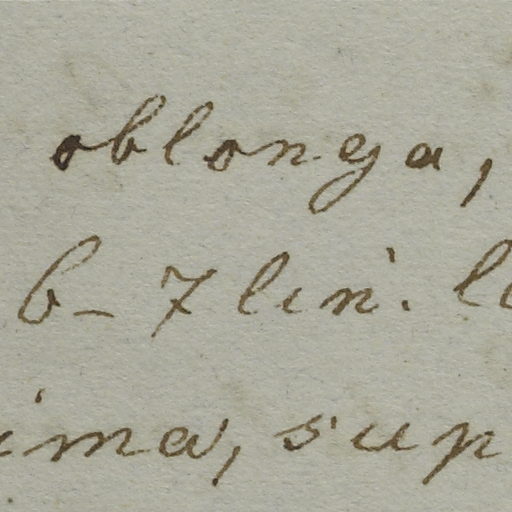 oblonga,
6-7 lin. l
ima, sup